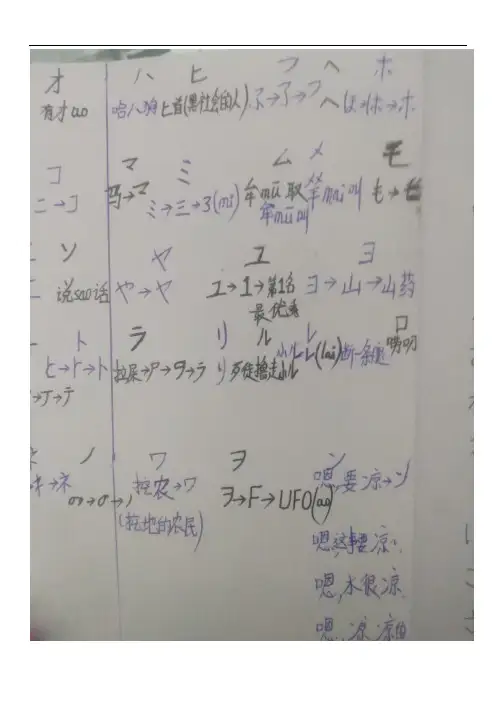 オ ハ ヒ フ ヘ ホ
有才ao 哈八狗 匕首(黑社会的人) 不→了→フ ヘ ほ→休→ホ
コ マ ミ ム メ モ
ニ→コ 马→マ ミ→三→3(mi) 牟mü取 羊mai叫 も→モ
牟mü叫
ソ ヤ ユ ヨ
说sao话 や→ヤ ユ→1→第1名 ヨ→山→山药
最优秀
ト ラ リ ル レ ロ
と→ト→ト 拉屎→P→タ→ラ リ 歹徒撸走小ル レ(lai)断一条腿 唠叨
→丁→テ
ノ ワ ヲ ン
ネ→ネ の→σ→ノ 挖农→ワ ヲ→F→UFO(ao) 嗯,要凉→ン
(挖地的农民)
嗯,这事要凉
嗯,水很凉
嗯,凉,凉